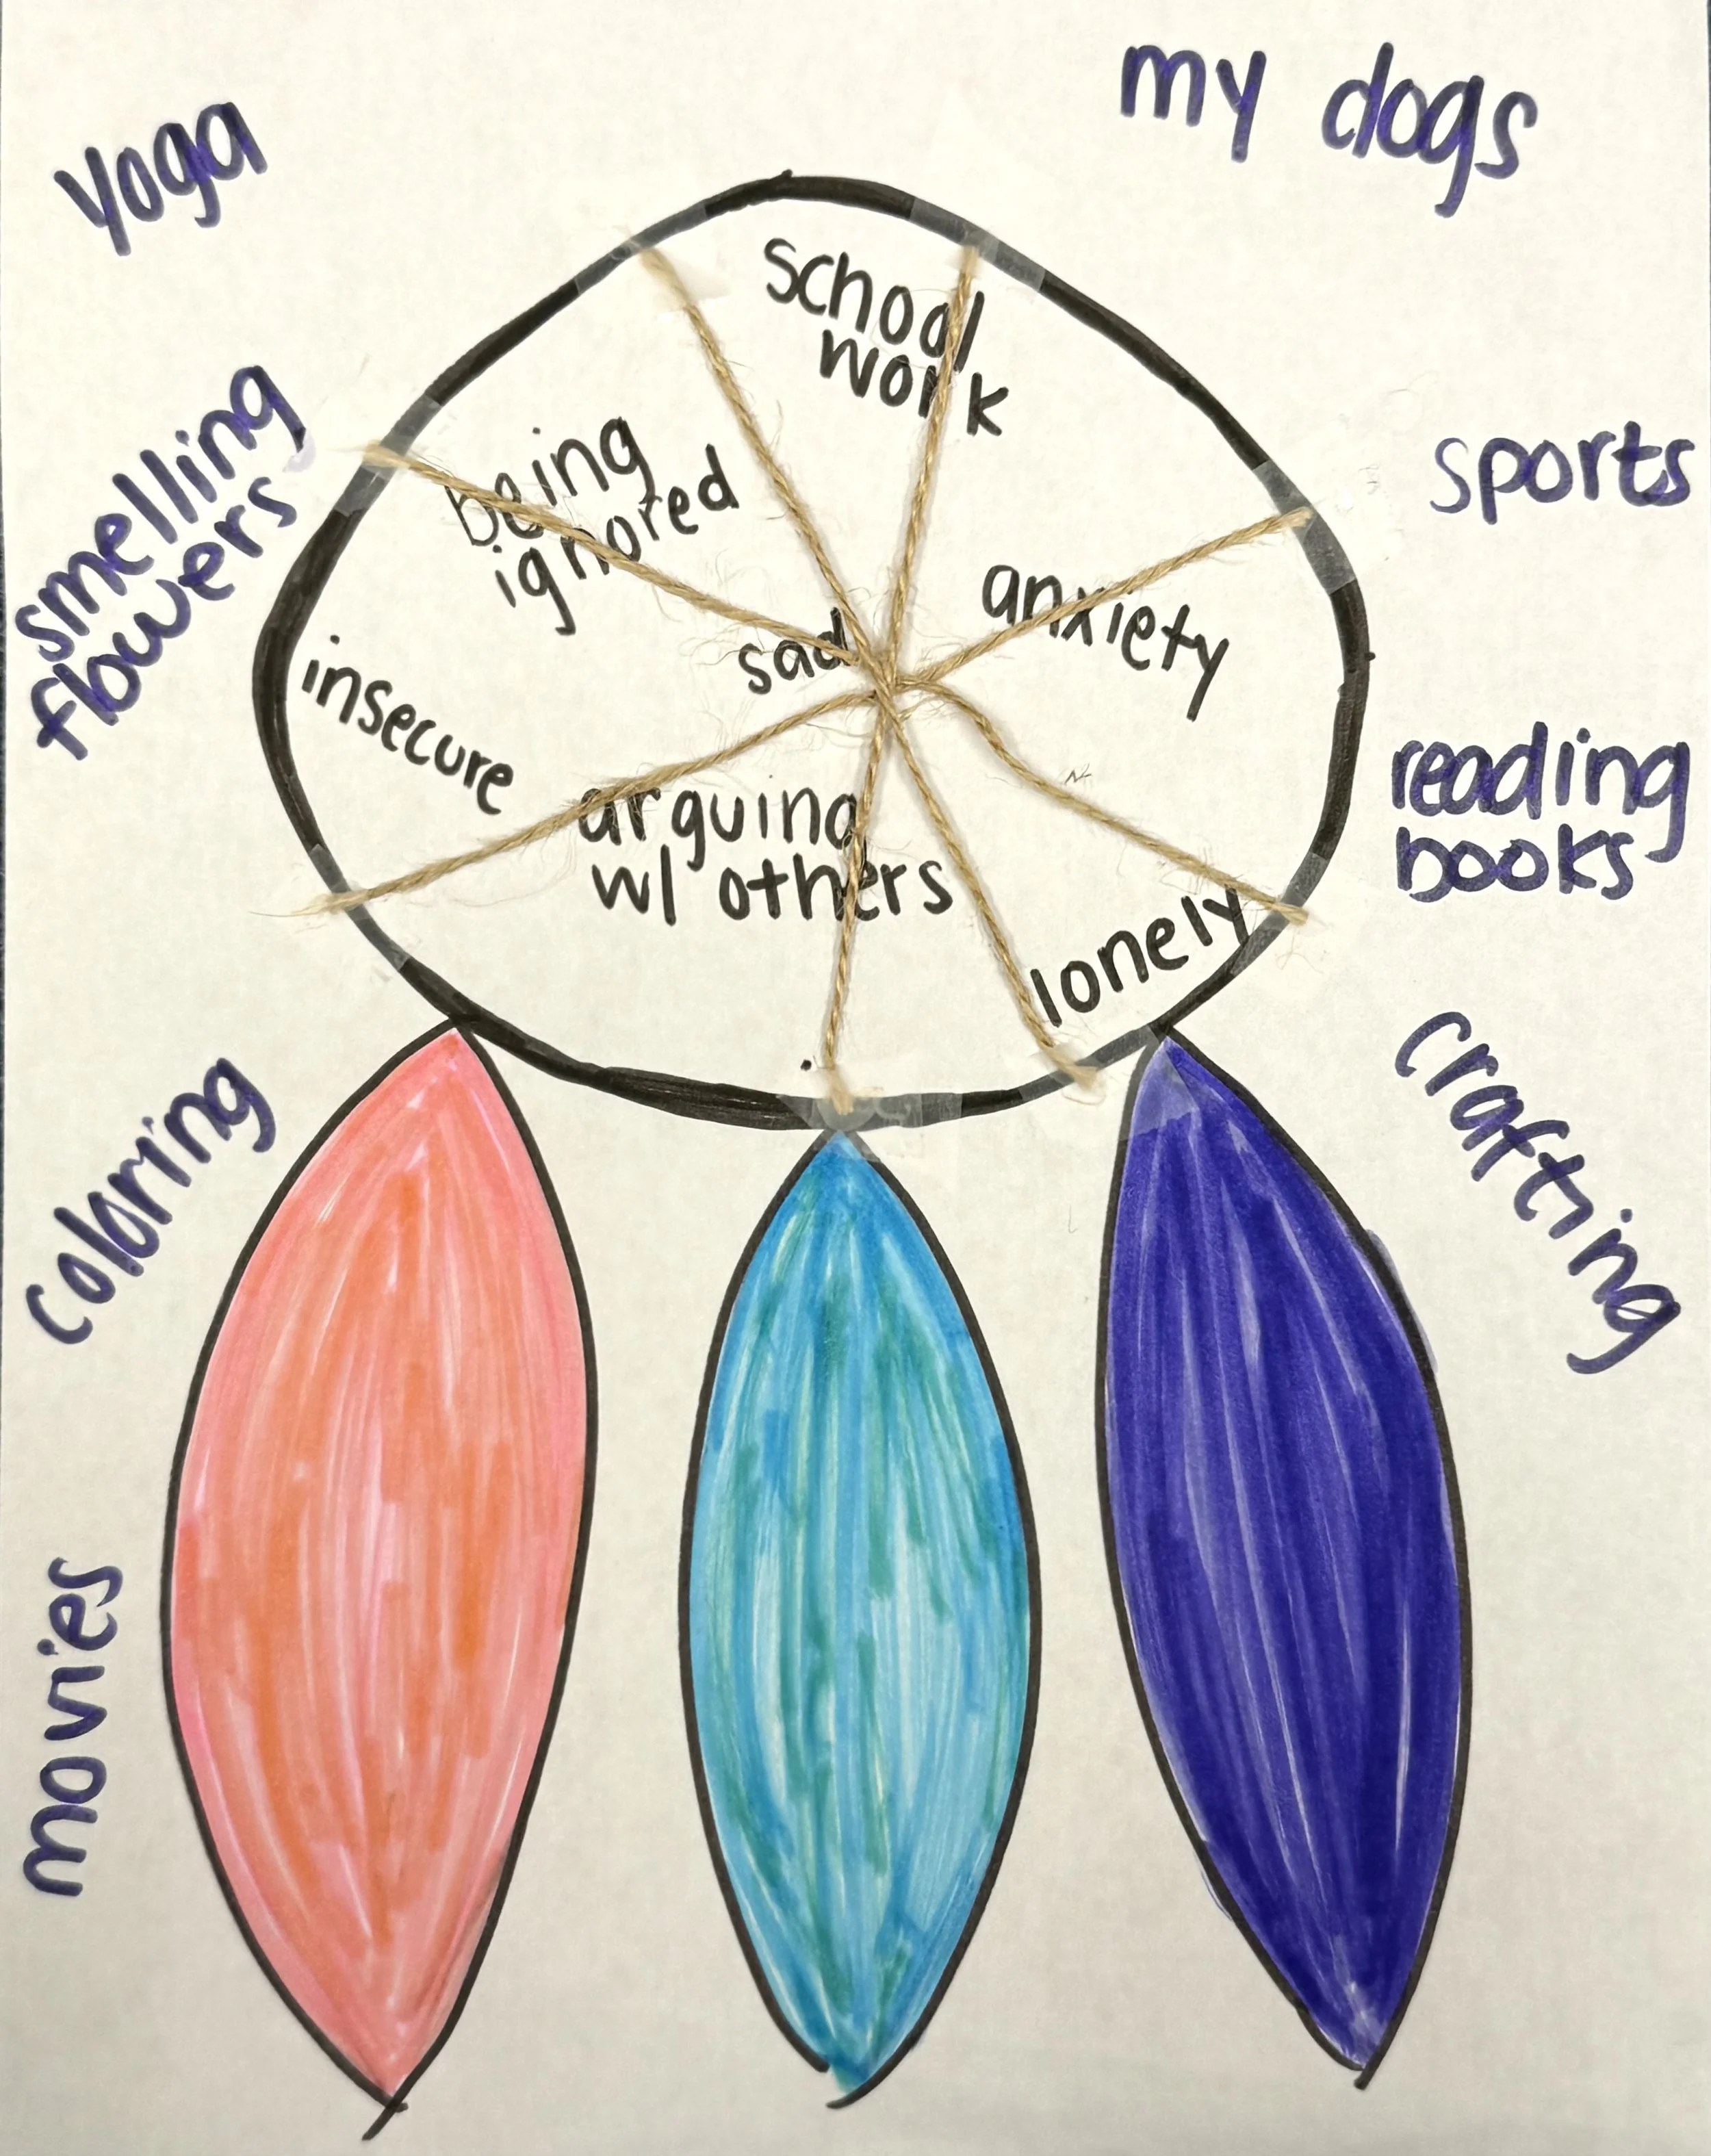 my dogs
Yoga
school
work
smelling
flowers
being
ignored
sports
anxiety
sad
insecure
reading
books
arguing
w/ others
lonely
coloring
crafting
movies